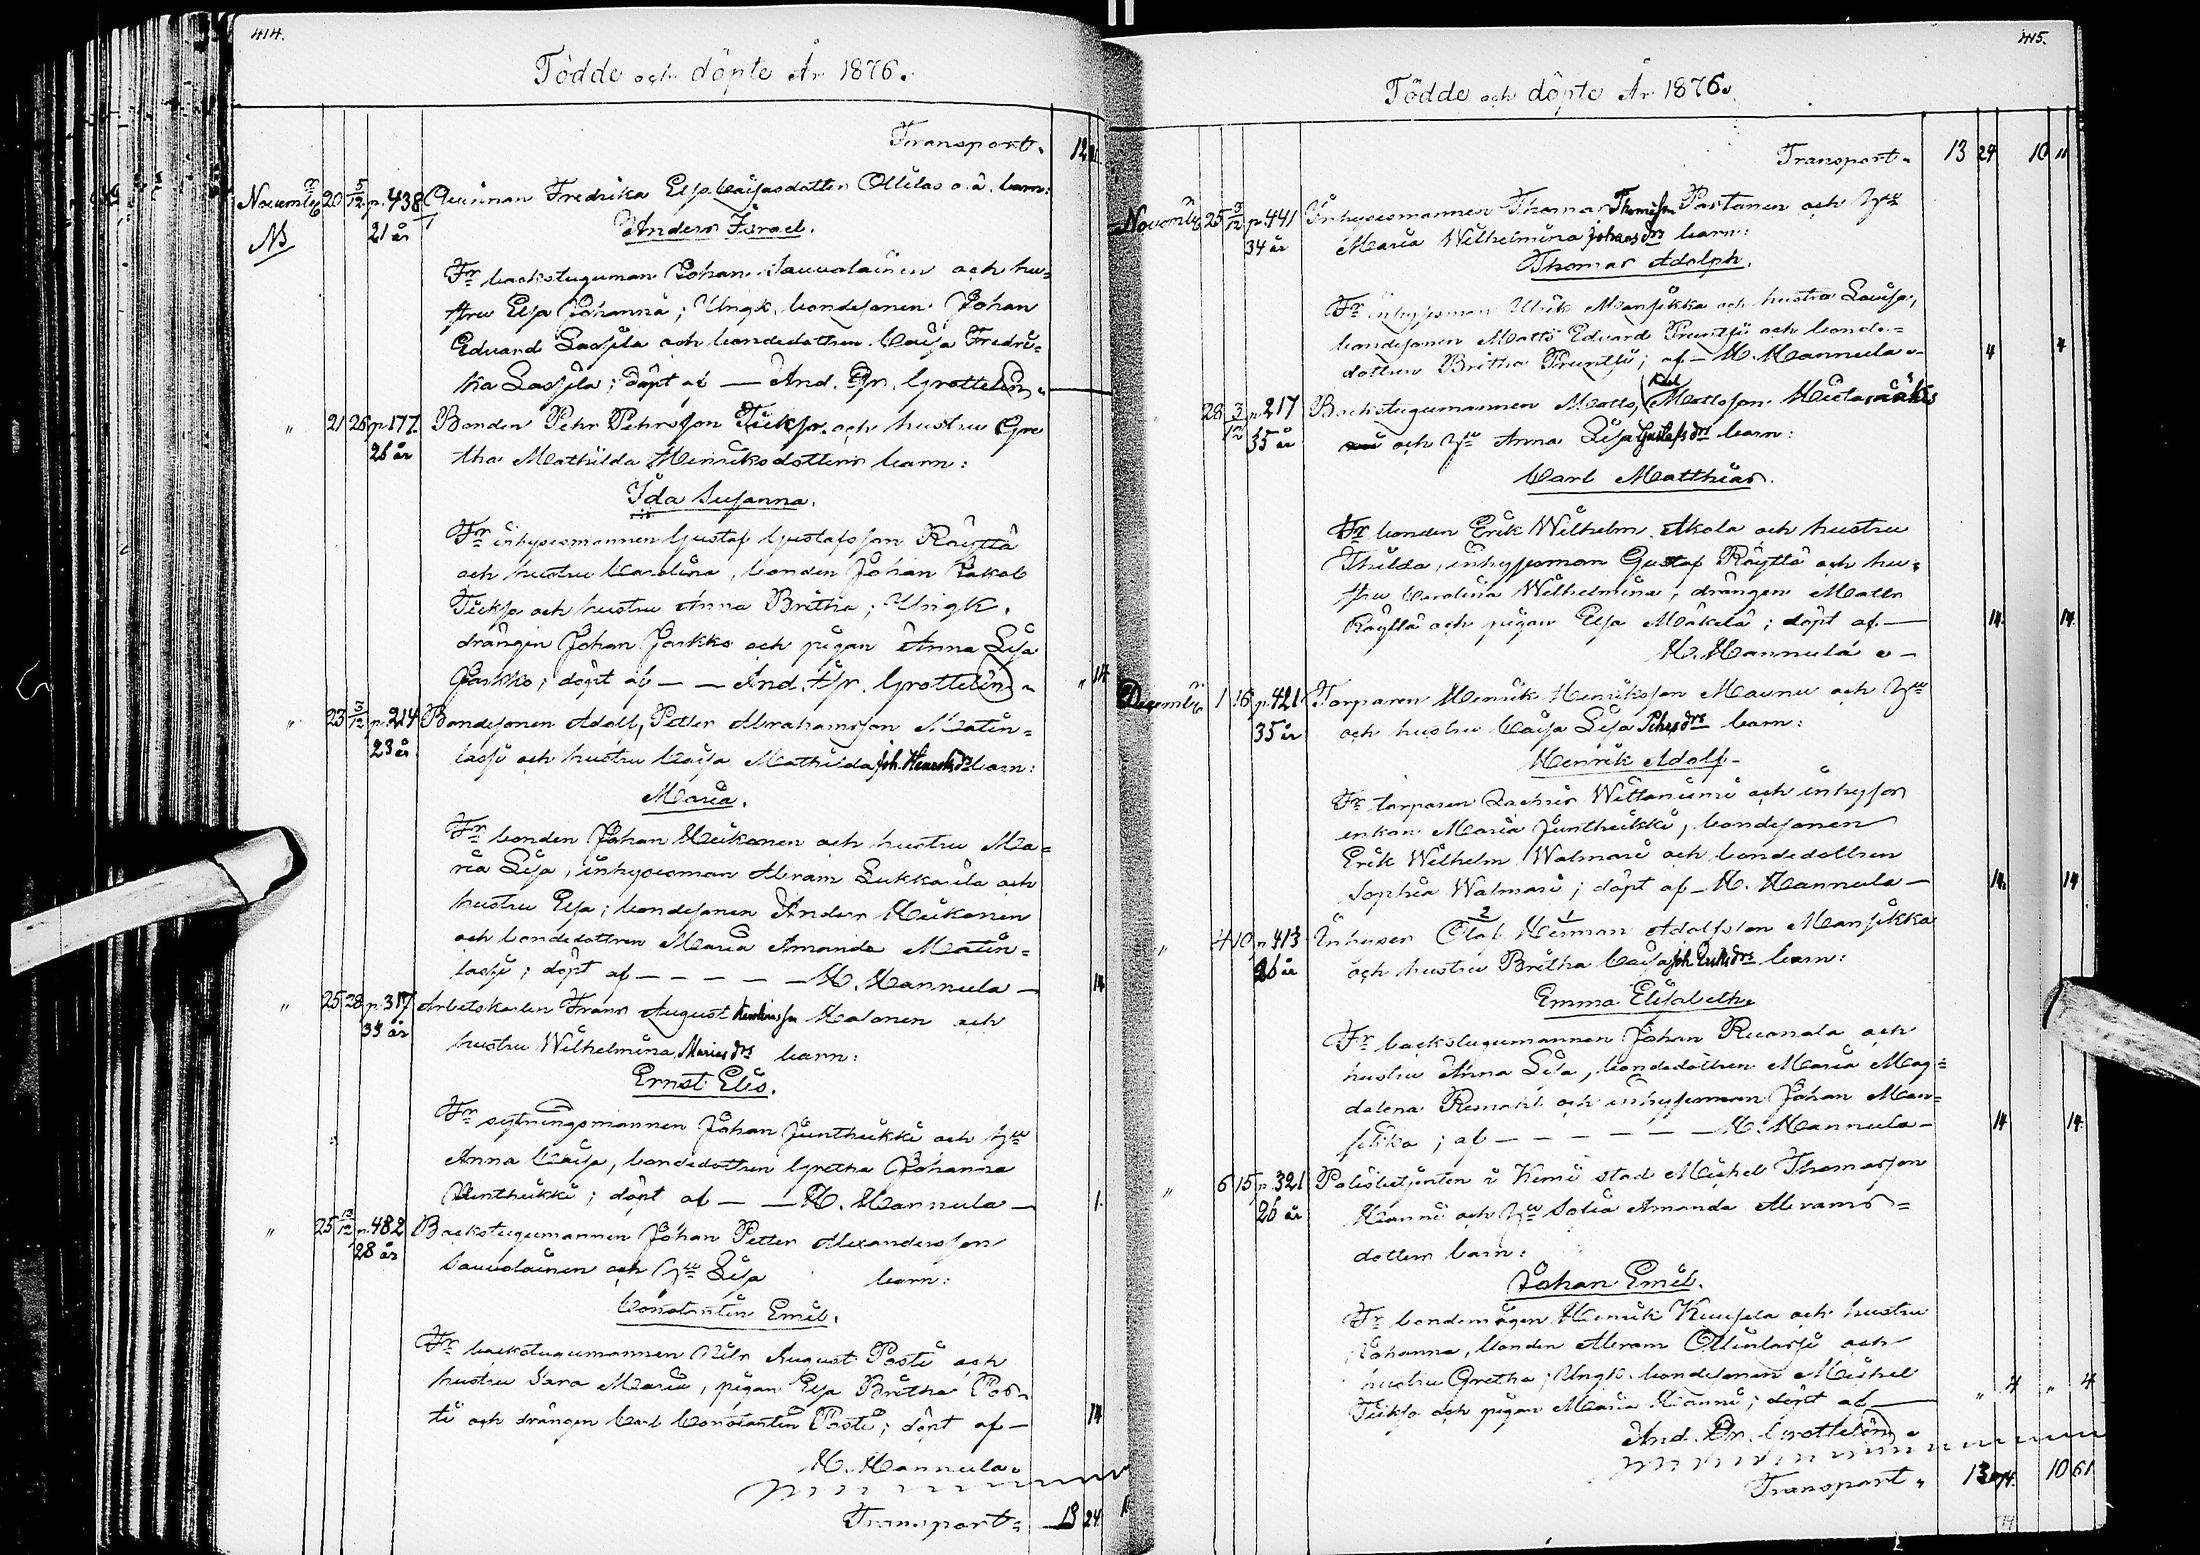 414.
Födde och döpte År 1876.
Transport. 12
November 20 5/12 p. 438 Qvinnan Fredrika Elsa Caisasdotter Ollilas o. ä. barn:
NB 21 år Anders Israel.
Fr backstuguman Johan Sauvolainen och hu=
stru Elsa Johanna; Ungk. bondesonen Johan
Eduard Laspla och bondedottren Caisa Fredri=
ka Laspla; döpt af — And. Gr. Grottelin.
" 21 26 p. 177 Bonden Pehr Pehrsson Tiekso och hustru Gre
26 år tha Mathilda Henriksdotters barn:
Ida Susanna.
Fr inhysesmannen Gustaf Gustafsson Räyttä
och hustru Carolina, bonden Johan Jakob
Tiekso och hustru Anna Britha; Ungk.
drängen Johan Jarkko och pigan Anna Lisa
Jarkko; döpt af — — And. Gr. Grottelin " 14
" 23 3/12 p. 214 Bondesonen Adolf, Petter Abrahamsson Matin=
23 år lassi och hustru Caisa Mathilda Joh. Henriksdrs barn:
Maria.
Fr bonden Johan Keikonen och hustru Ma=
ria Lisa, inhysesman Abram Lukkarila och
hustru Elsa; bondesonen Anders Keikonen
och bondedottren Maria Amanda Matin=
lassi; döpt af — — — — H. Hannula — 14
" 25 28 p. 317 Arbetskarlen Frans August Henriksson Halonen och
35 år hustru Wilhelmina Mariasdrs barn:
Ernst Elis.
Fr sytningsmannen Johan Junthikki och hu
Anna Caisa, bondedottren Gretha Johanna
Junthikki; döpt af — — H. Hannula — 1.
" 25 13/12 p. 482 Backstugumannen Johan Petter Alexandersson
28 år Sauvolainen och hu Lisa barn:
Constantin Emil.
Fr backstugumannen Nils August Posti och
hustru Sara Maria, pigan Elsa Britha Pos=
ti och drängen Carl Constantin Posti; döpt af — 14
H. Hannula.
Transport. 13 24
415.
Födde och döpte År 1876.
Transport. 13 24 10 11
November 25 3/12 p. 441 Inhysesmannen Thomas Thomasson Partanen och hu
34 år Maria Wilhelmina Johansdrs barn:
Thomas Adolph.
Fr inhysesman Ulrik Mansikka och hustru Lovisa,
bondesonen Matts Eduard Pruntsi och bonde=
dottren Britha Pruntsi; af — H. Hannula — 4 4
" 28 3/12 p. 217 Backstugumannen Matts, Karl Mattsson Mietaniemi
35 år och hu Anna Lisa Gustafsdrs barn:
Carl Matthias.
Fr bonden Erik Wilhelm Akola och hustru
Thilda, inhysesman Gustaf Räyttä och hu=
stru Carolina Wilhelmina, drängen Matts
Räyttä och pigan Elsa Mäkelä; döpt af — 14 14
H. Hannula —
December 1 16 p. 421 Torparen Henrik Henriksson Maunu och hu
35 år och hustru Caisa Lisa Pehrsdrs barn:
Henrik Adolf.
Fr torparen Zachris Wittaniemi och inhyses
enkan Maria Junthikki, bondesonen
Erik Wilhelm Walmari och bondedottren
Sophia Walmari; döpt af — H. Hannula — 14 14
" 4 10 p. 413 Inhyses Olof Herman Adolfsson Mansikka
26 år och hustru Britha Caisa Joh. Eriksdrs barn:
Emma Elisabeth.
Fr backstugumannen Johan Ruonala och
hustru Anna Lisa, bondedottren Maria Mag=
dalena Remahl och inhysesman Johan Man=
sikka; af — — — — — — H. Hannula — 14 14
" 6 15 p. 321 Polisbetjenten i Kemi stad Michel Thomasson
26 år Hianni och hu Sofia Amanda Abrams=
dotters barn:
Johan Emil.
Fr bondemågen Henrik Kuusela och hustru
Johanna, bonden Abram Ollinlassi och
hustru Gretha; Ungk. bondesonen Michel
Tiekso och pigan Maria Hianni; döpt af — " 4 " 4
And. Gr. Grottelin.
Transport. 13 10 61